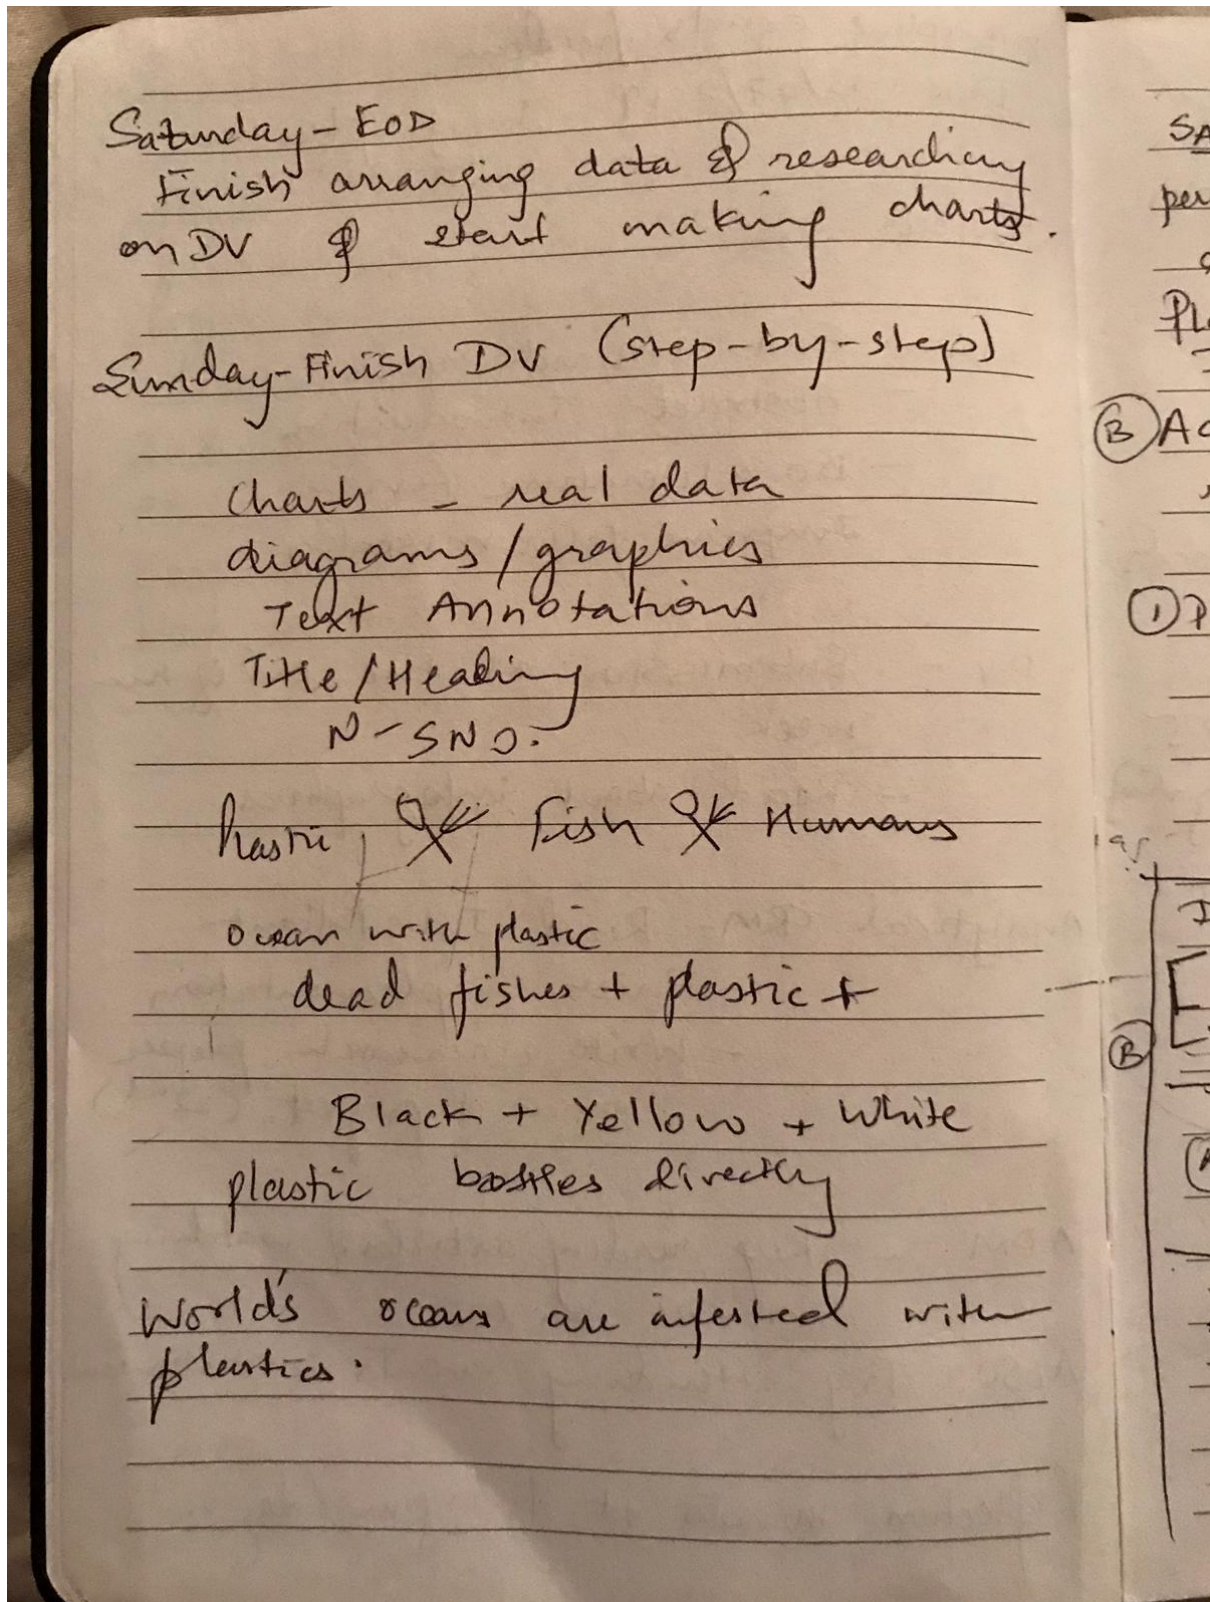 Saturday - EOD
Finish arranging data & researching
on DV & start making charts.
Sunday - Finish DV (step-by-step)
Charts - real data
diagrams / graphics
Text Annotations
Title / Heading
N - SNO.
Plastic Fish Humans
ocean with plastic
dead fishes + plastic +
Black + Yellow + White
plastic bottles directly
World's oceans are infested with
plastics.
SA
per
PL
(B) AC
(1) P
(B)